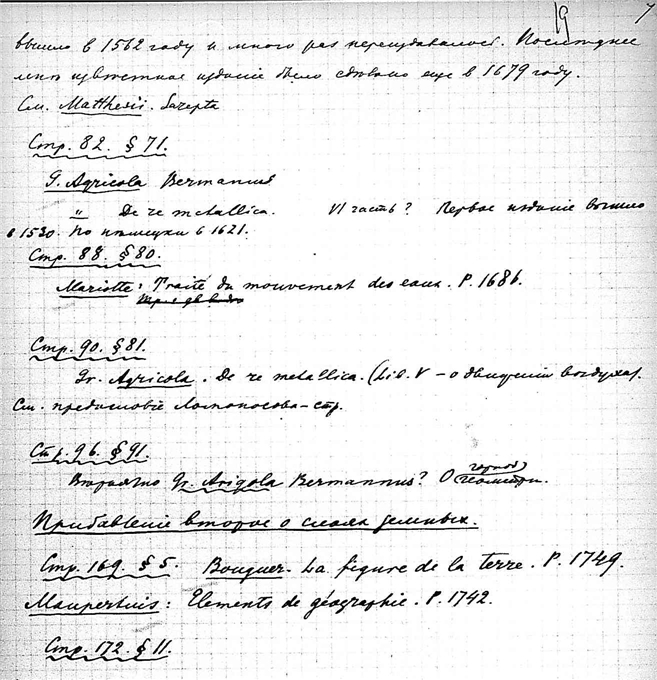 19 7
вышло в 1562 году и много раз переиздавалось. Последнее
мне известное издание было сделано еще в 1679 году.
См. Matthesis. Sarepta
Стр. 82. § 71.
G. Agricola Bermannus
" De re metallica. VI часть? Первое издание вышло
в 1530. По немецки в 1621.
Стр. 88. § 80.
Mariotte: Traité du mouvement des eaux. P. 1686.
Стр. 90. § 81.
Gr. Agricola. De re metallica. (Lib. V – о движении воздуха).
См. предисловіе Ломоносова – стр.
Стр. 96. § 91.
Вероятно Gr. Arigola Bermannus? О горной геометри.
Прибавленіе второе о слояхъ земныхъ.
Стр. 169. § 5. Bouguer. La figure de la terre. P. 1749.
Maupertuis: Elements de géographie. P. 1742.
Стр. 172. § 11.